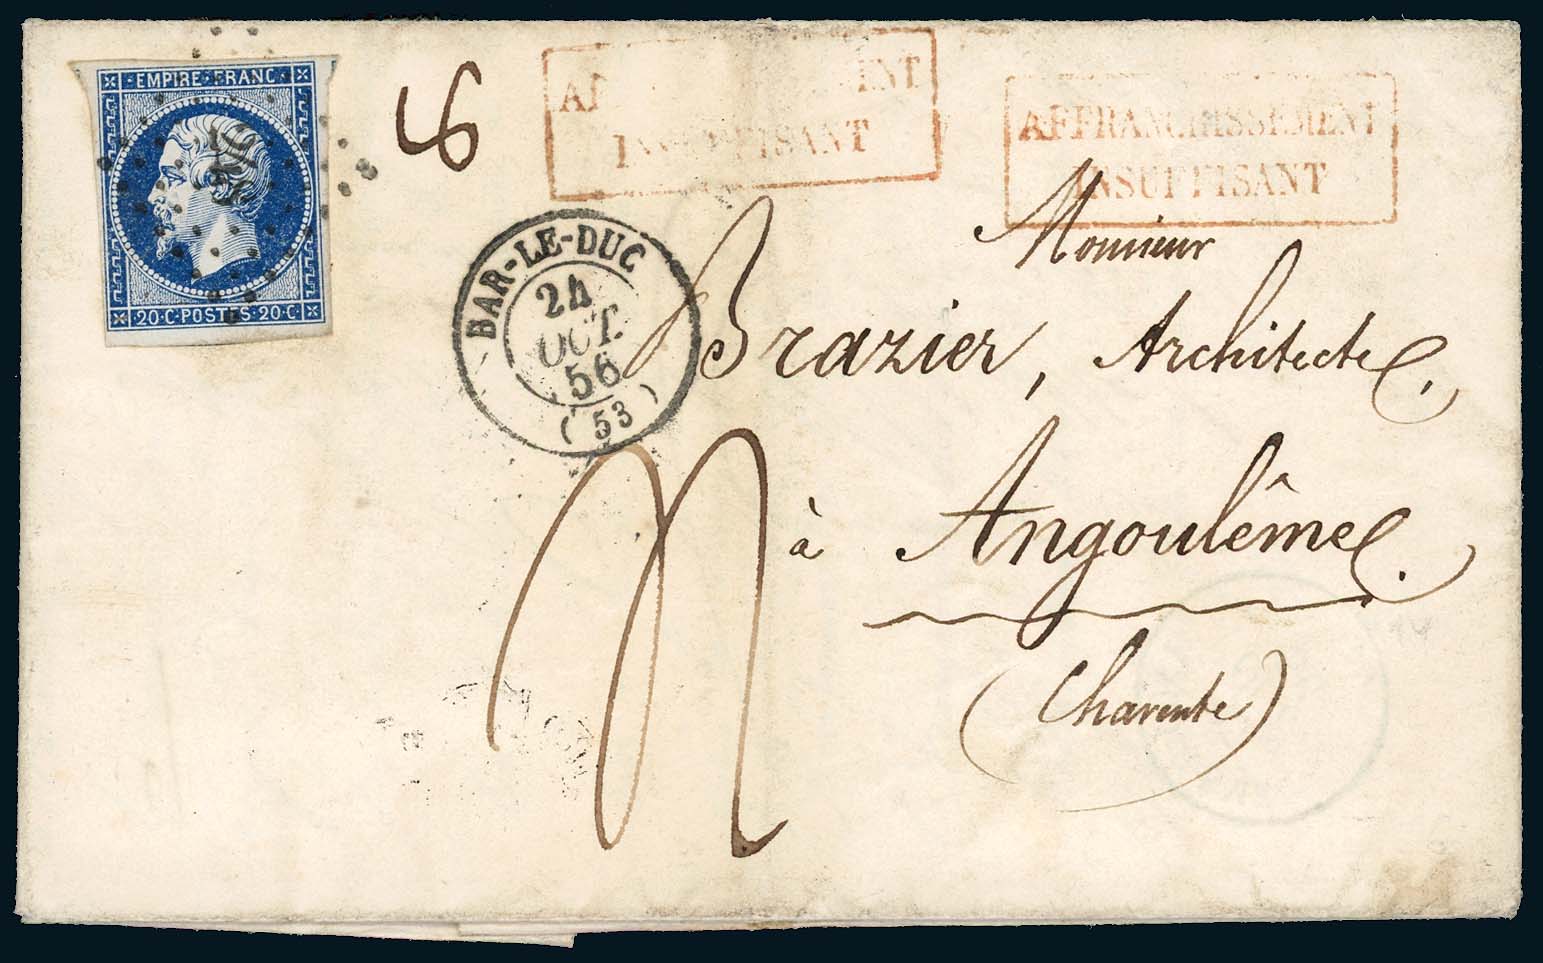 EMPIRE FRANC
20·C·POSTES·20·C
8
AFFRANCHISSEMENT
INSUFFISANT
BAR-LE-DUC
24
OCT.
56
(53)
Monsieur
Brazier, Architecte,
à Angoulême.
(Charente)